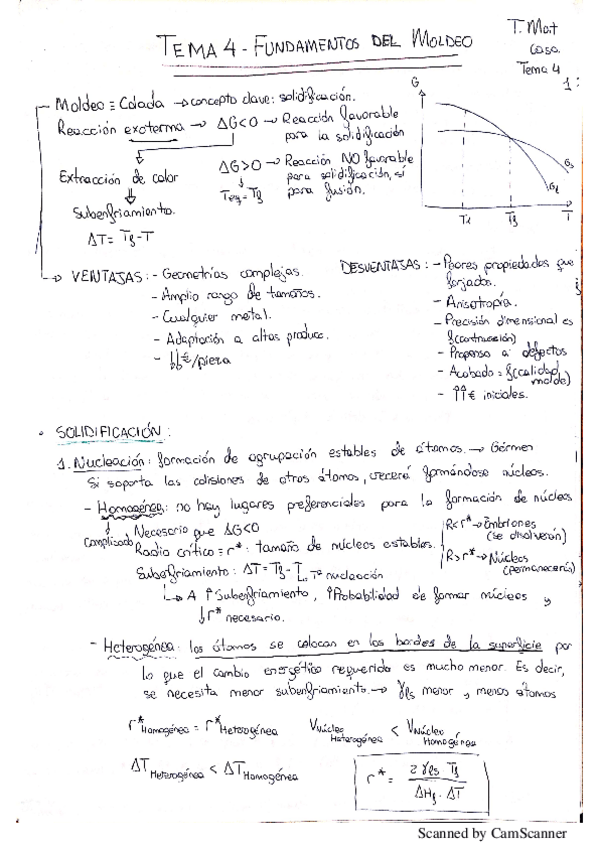 TEMA 4 - FUNDAMENTOS DEL MOLDEO
T. Mat
Casa.
Tema 4
1:
Moldeo ≡ Colada → concepto clave: solidificación.
Reacción exoterma → ΔG<0 → Reacción favorable
para la solidificación
Extracción de calor
ΔG>0 → Reacción NO favorable
para solidificación, sí
para fusión.
Subenfriamiento.
ΔT = Tf - T
G
Gs
GL
Tf
T
→ VENTAJAS: - Geometrías complejas.
- Amplio rango de tamaños.
- Cualquier metal.
- Adaptación a altas producc.
- ↓↓€/pieza
DESVENTAJAS: - Peores propiedades que
forjados.
- Anisotropía.
- Precisión dimensional es
f(contracción)
- Propenso a defectos
- Acabado = f(calidad
molde)
- ↑↑€ iniciales.
• SOLIDIFICACIÓN:
1. Nucleación: formación de agrupación estables de átomos. → Gérmen
Si soporta las colisiones de otros átomos, crecerá formándose núcleos.
- Homogénea: no hay lugares preferenciales para la formación de núcleos
Complicado
Necesario que ΔG<0
Radio crítico = r*: tamaño de núcleos estables.
R<r* → Embriones
(se disolverán)
R>r* → Núcleos
(permanecerán)
Subenfriamiento: ΔT = Tf - T → Tª nucleación
→ A ↑Subenfriamiento, ↑Probabilidad de formar núcleos y
↓r* necesario.
- Heterogénea: los átomos se colocan en los bordes de la superficie por
lo que el cambio energético requerido es mucho menor. Es decir,
se necesita menor subenfriamiento. → γls menor y menos átomos
r*Homogénea = r*Heterogénea
VNúcleo Heterogénea < VNúcleo Homogénea
ΔT Heterogénea < ΔT Homogénea
r* = 2 γls Tf / ΔHf · ΔT
Scanned by CamScanner